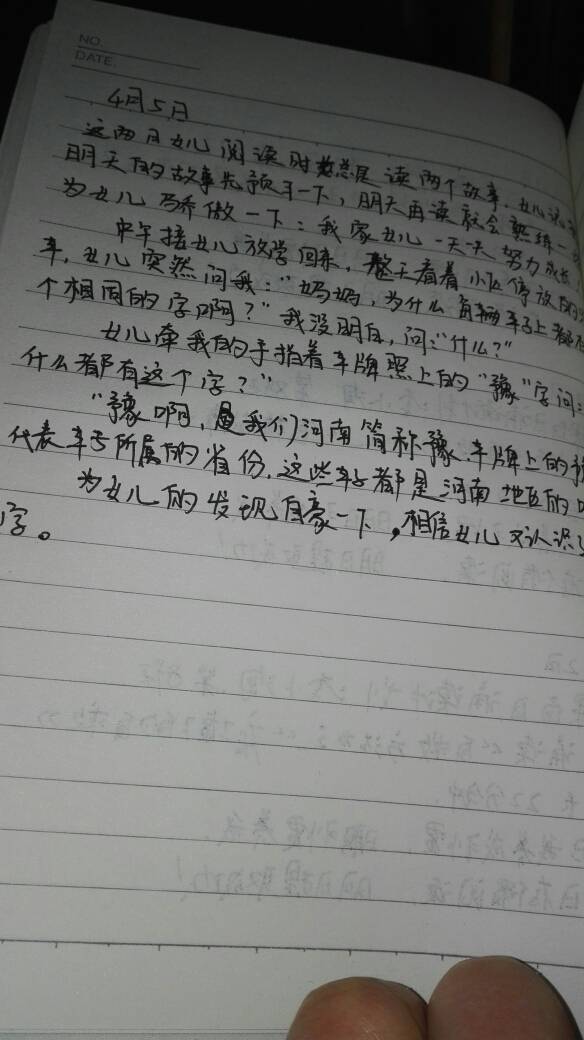 NO.
DATE.
4月5日
这两日女儿阅读时总是读两个故事,女儿说
明天的故事先预习一下,明天再读就会熟练一
为女儿骄傲一下:我家女儿一天天努力成长
中午接女儿放学回来,看着小区停放的
车,女儿突然问我:“妈妈,为什么每辆车子上都
个相同的字啊?”我没明白,问:“什么?”
女儿牵我的手指着车牌照上的“豫”字问:
什么都有这个字?”
“豫啊,是我们河南简称豫,车牌上的
代表车子所属的省份,这些车子都是河南地区的
为女儿的发现自豪一下,相信女儿又认识
字。